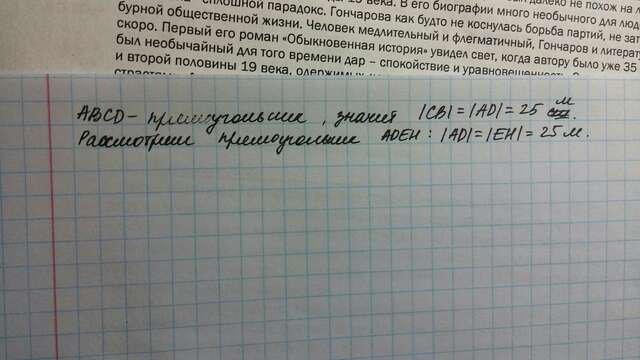 сплошной парадокс. Гончарова как будто не коснулась борьба партий, не зат
бурной общественной жизни. Человек медлительный и флегматичный, Гончаров и литерату
скоро. Первый его роман «Обыкновенная история» увидел свет, когда автору было уже 35
был необычайный для того времени дар – спокойствие и уравновешенность.
и второй половины 19 века,
ABCD – прямоугольник, значит |CB| = |AD| = 25 м.
Рассмотрим прямоугольник ADEH: |AD| = |EH| = 25 м.